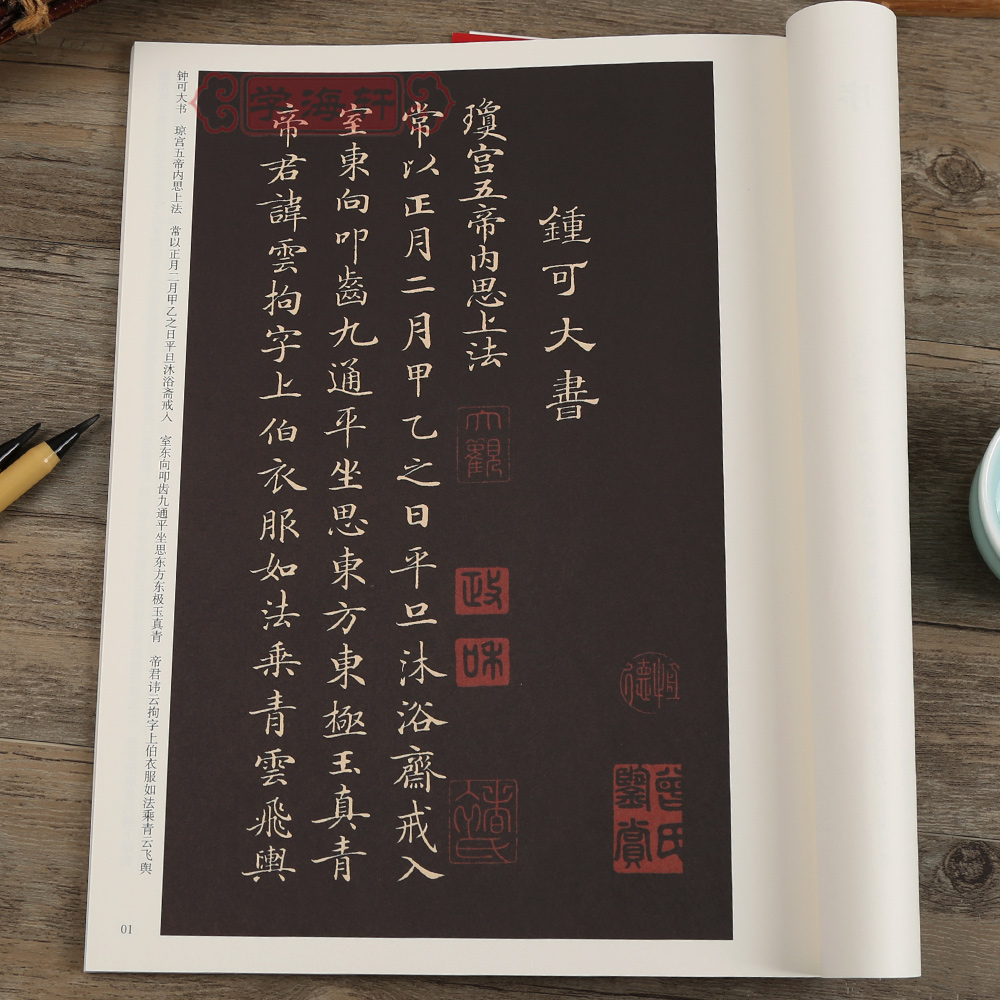 鍾可大書
瓊宮五帝內思上法
常以正月二月甲乙之日平旦沐浴齋戒入
室東向叩齒九通平坐思東方東極玉真青
帝君諱雲拘字上伯衣服如法乘青雲飛輿
大觀
政
和
鑒賞
学海轩
钟可大书 琼宫五帝内思上法 常以正月二月甲乙之日平旦沐浴斋戒入 室东向叩齿九通平坐思东方东极玉真青 帝君讳云拘字上伯衣服如法乘青云飞舆
01